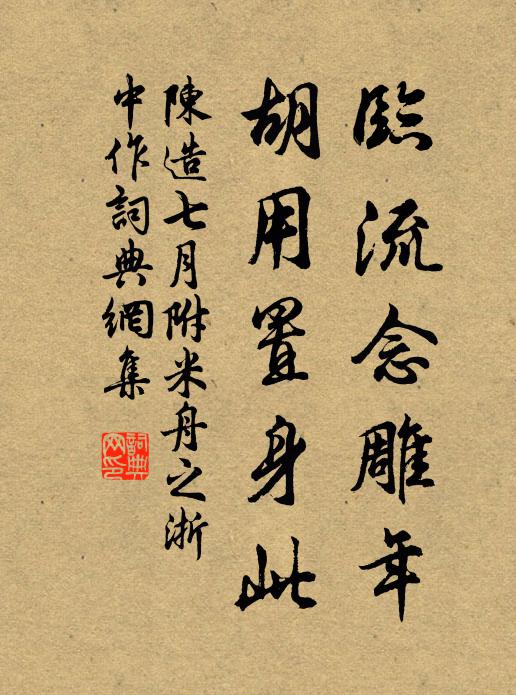 臨流念雕年
胡用置身此
陳造七月附米舟之浙
中作詞典網集
詞典網印